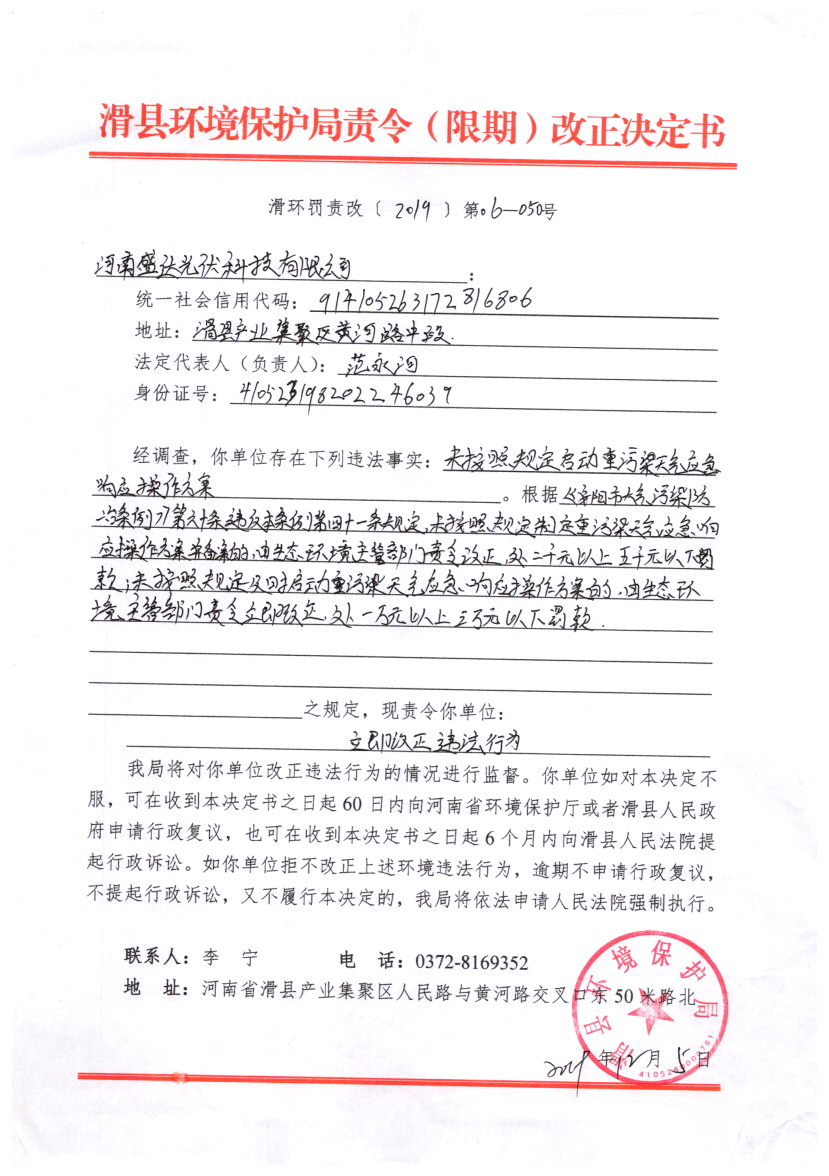 滑县环境保护局责令（限期）改正决定书
滑环罚责改〔 2019 〕第06—050号
河南盛达光伏科技有限公司：
统一社会信用代码：914105263172816806
地址：滑县产业集聚区黄河路中段.
法定代表人（负责人）：范永河
身份证号：410523198202246039
经调查，你单位存在下列违法事实：未按照规定启动重污染天气应急
响应操作方案。根据《安阳市大气污染防
治条例》第六十条违反本条例第四十一条规定,未按照规定制定重污染天气应急响
应操作方案并备案的,由生态环境主管部门责令改正,处二千元以上五千元以下罚
款；未按照规定及时启动重污染天气应急响应操作方案的,由生态环
境主管部门责令立即改正,处一万元以上三万元以下罚款.
之规定，现责令你单位：
立即改正违法行为
我局将对你单位改正违法行为的情况进行监督。你单位如对本决定不
服，可在收到本决定书之日起 60 日内向河南省环境保护厅或者滑县人民政
府申请行政复议，也可在收到本决定书之日起 6 个月内向滑县人民法院提
起行政诉讼。如你单位拒不改正上述环境违法行为，逾期不申请行政复议，
不提起行政诉讼，又不履行本决定的，我局将依法申请人民法院强制执行。
联系人：李 宁 电 话：0372-8169352
地 址：河南省滑县产业集聚区人民路与黄河路交叉口东 50 米路北
2019年12月5日
滑县环境保护局